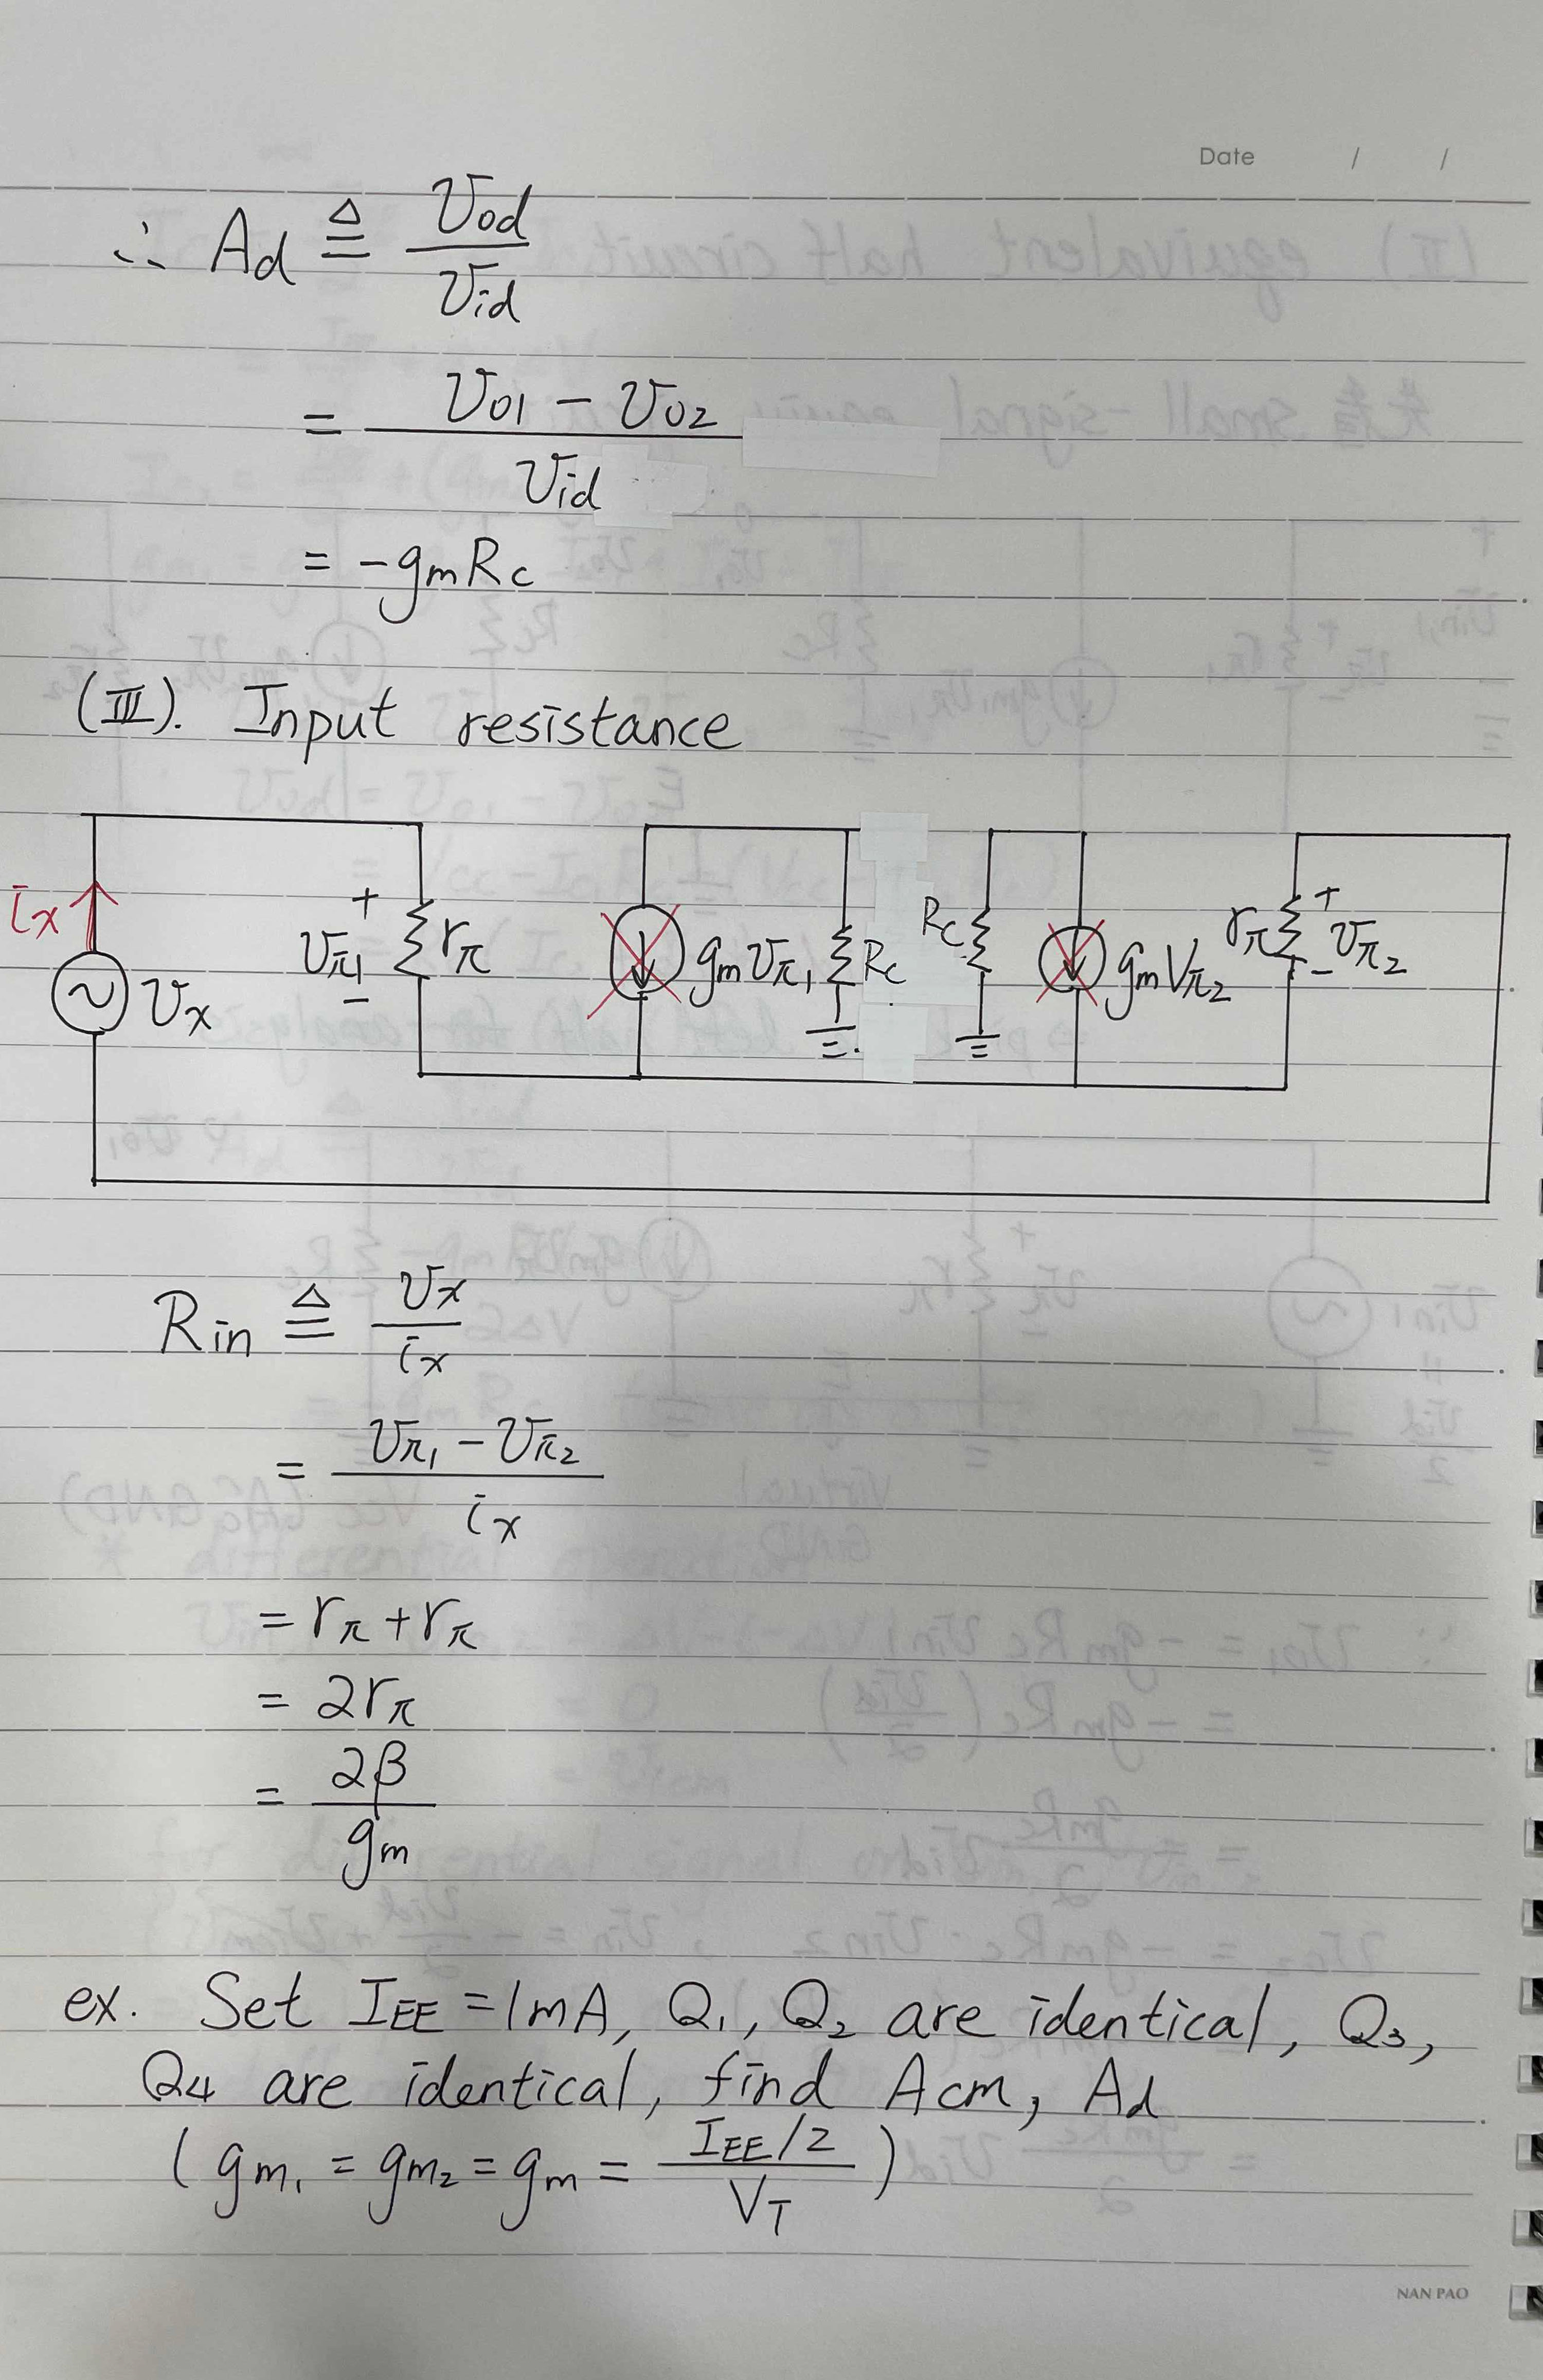 Date / /
∴ Ad ≜ vod / vid
= vo1 − vo2 / vid
= −gmRc
(III). Input resistance
ix vx + vπ1 − rπ gmvπ1 Rc Rc gmVπ2 rπ + vπ2 −
Rin ≜ vx / ix
= vπ1 − vπ2 / ix
= rπ + rπ
= 2rπ
= 2β / gm
ex. Set IEE = 1mA, Q1, Q2 are identical, Q3,
Q4 are identical, find Acm, Ad
( gm1 = gm2 = gm = IEE/2 / VT )
NAN PAO